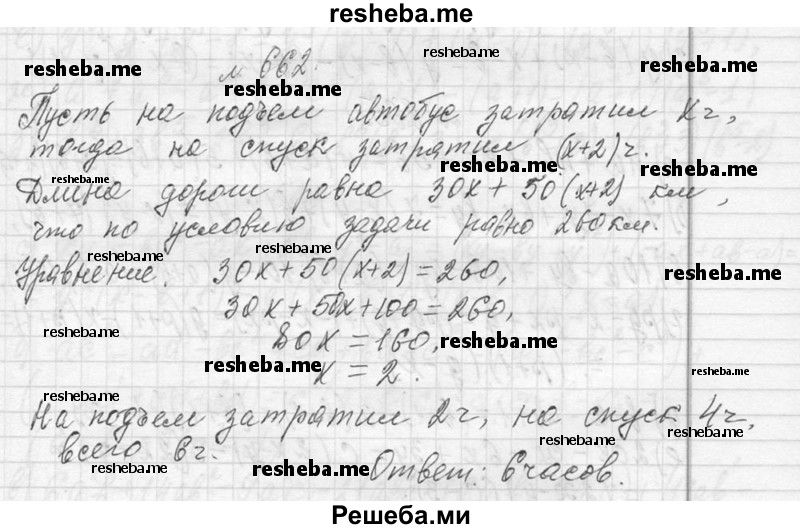 resheba.me
resheba.me
resheba.me
№ 662.
resheba.me
resheba.me
Пусть на подъем автобус затратил x ч,
тогда на спуск затратил (x+2) ч.
resheba.me
resheba.me
resheba.me
Длина дороги равна 30x + 50(x+2) км,
что по условию задачи равно 260 км.
resheba.me
resheba.me
Уравнение. 30x+50(x+2)=260,
resheba.me
30x+50x+100=260,
resheba.me
80x=160,
resheba.me
resheba.me
resheba.me
x = 2.
resheba.me
На подъем затратил 2ч, на спуск 4ч,
resheba.me
resheba.me
всего 6ч.
resheba.me
resheba.me
Ответ: 6 часов.
Решеба.ми